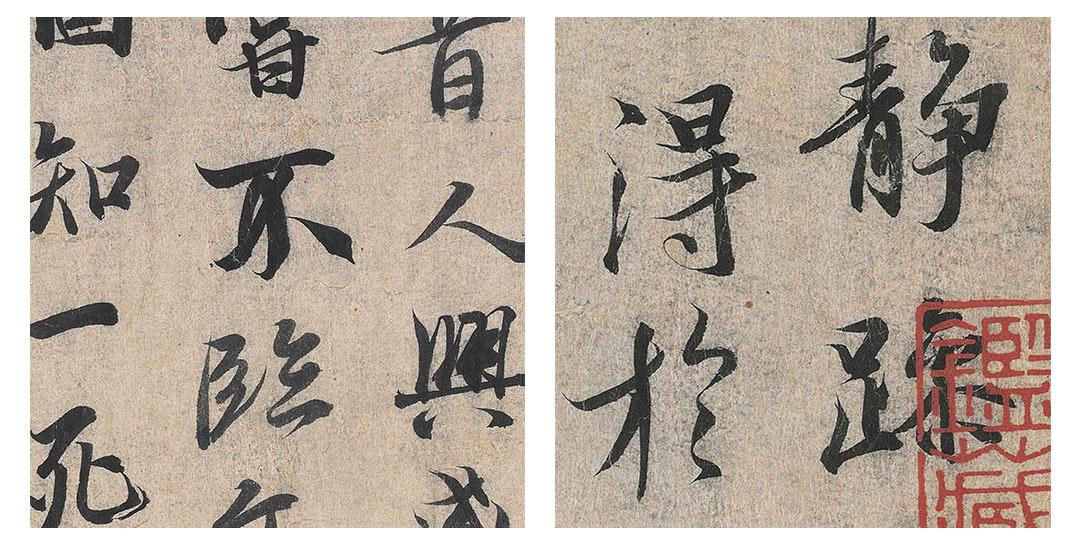 昔人興感
嘗不臨文
固知一死
静躁
得於
鑑藏